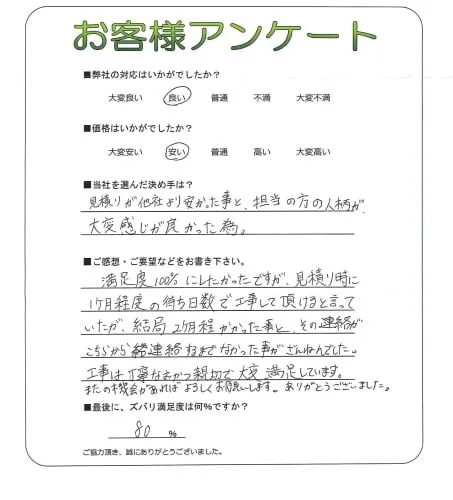 お客様アンケート
■弊社の対応はいかがでしたか?
大変良い 良い 普通 不満 大変不満
■価格はいかがでしたか?
大変安い 安い 普通 高い 大変高い
■当社を選んだ決め手は?
見積りが他社より安かった事と、担当の方の人柄が、
大変感じが良かった為。
■ご感想・ご要望などをお書き下さい。
満足度100%にしたかったですが、見積り時に
1ヶ月程度の待ち日数で工事して頂けると言って
いたが、結局2ヶ月程かかった事と、その連絡が
こちらから連絡するまでなかった事がざんねんでした。
工事は丁寧なおかつ親切で大変満足しています。
またの機会があればよろしくお願いします。ありがとうございました。
■最後に、ズバリ満足度は何%ですか?
80 %
ご協力頂き、誠にありがとうございました。